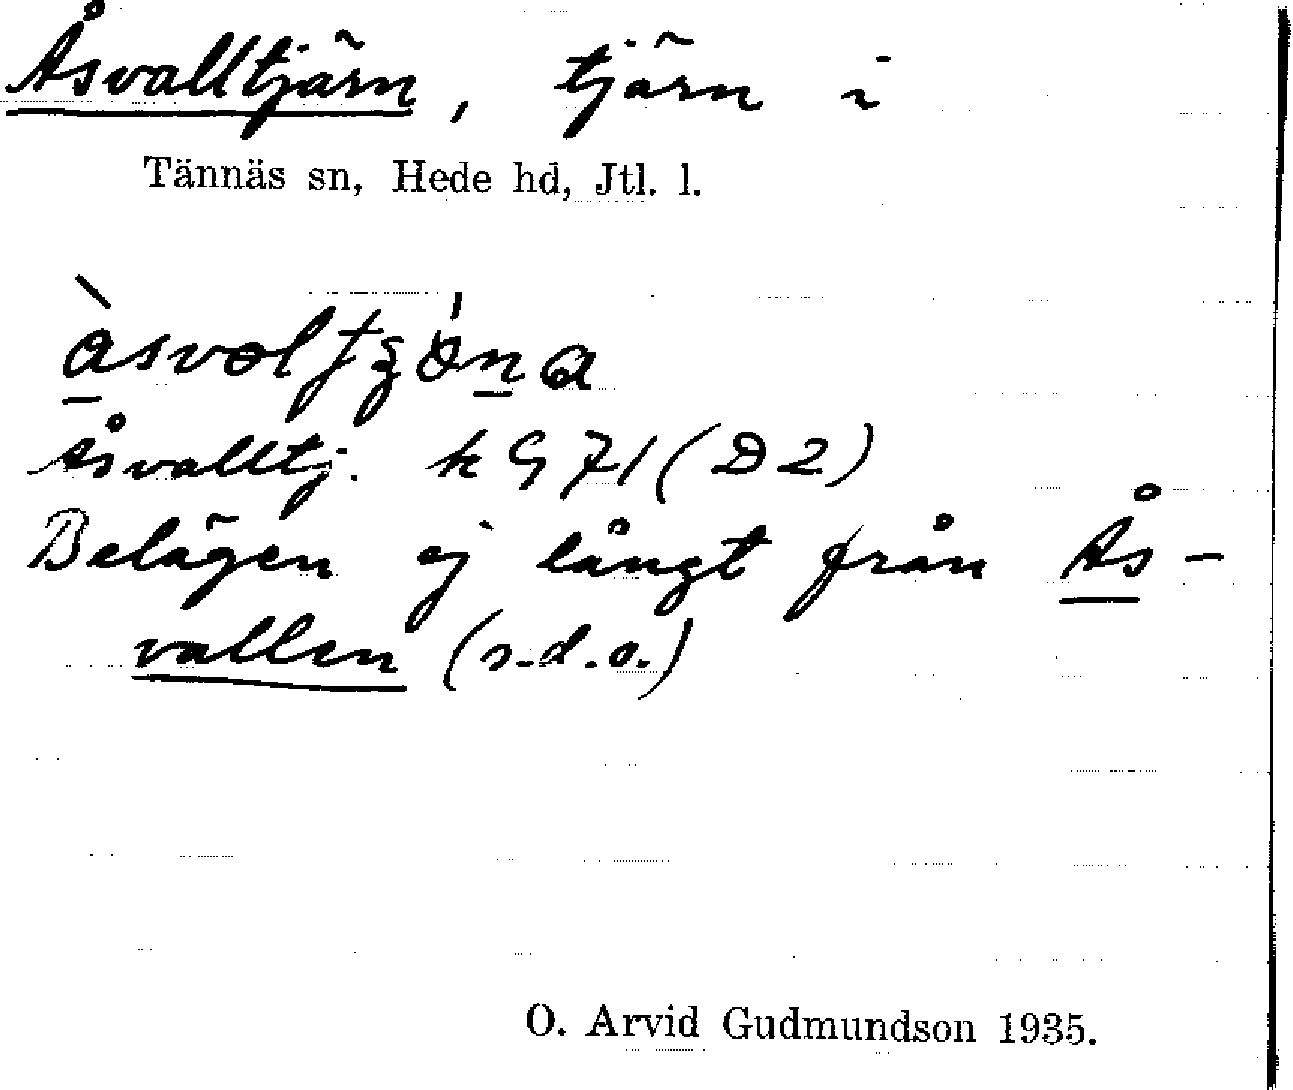 Åsvalltjärn, tjärn i
Tännäs sn, Hede hd, Jtl. l.
Åsvalltj. k G 71 (D 2)
Belägen ej långt från Ås-
vallen (s.d.o.)
O. Arvid Gudmundson 1935.